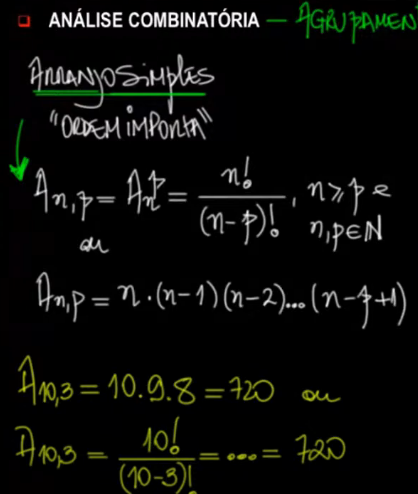 ANÁLISE COMBINATÓRIA — AGRUPAMEN
ARRANJO SIMPLES
"ORDEM IMPORTA"
A n,p = A n^p = n! / (n-p)! , n ≥ p e n,p ∈ N
ou
A n,p = n·(n-1)(n-2)...(n-p+1)
A 10,3 = 10.9.8 = 720 ou
A 10,3 = 10! / (10-3)! = ... = 720